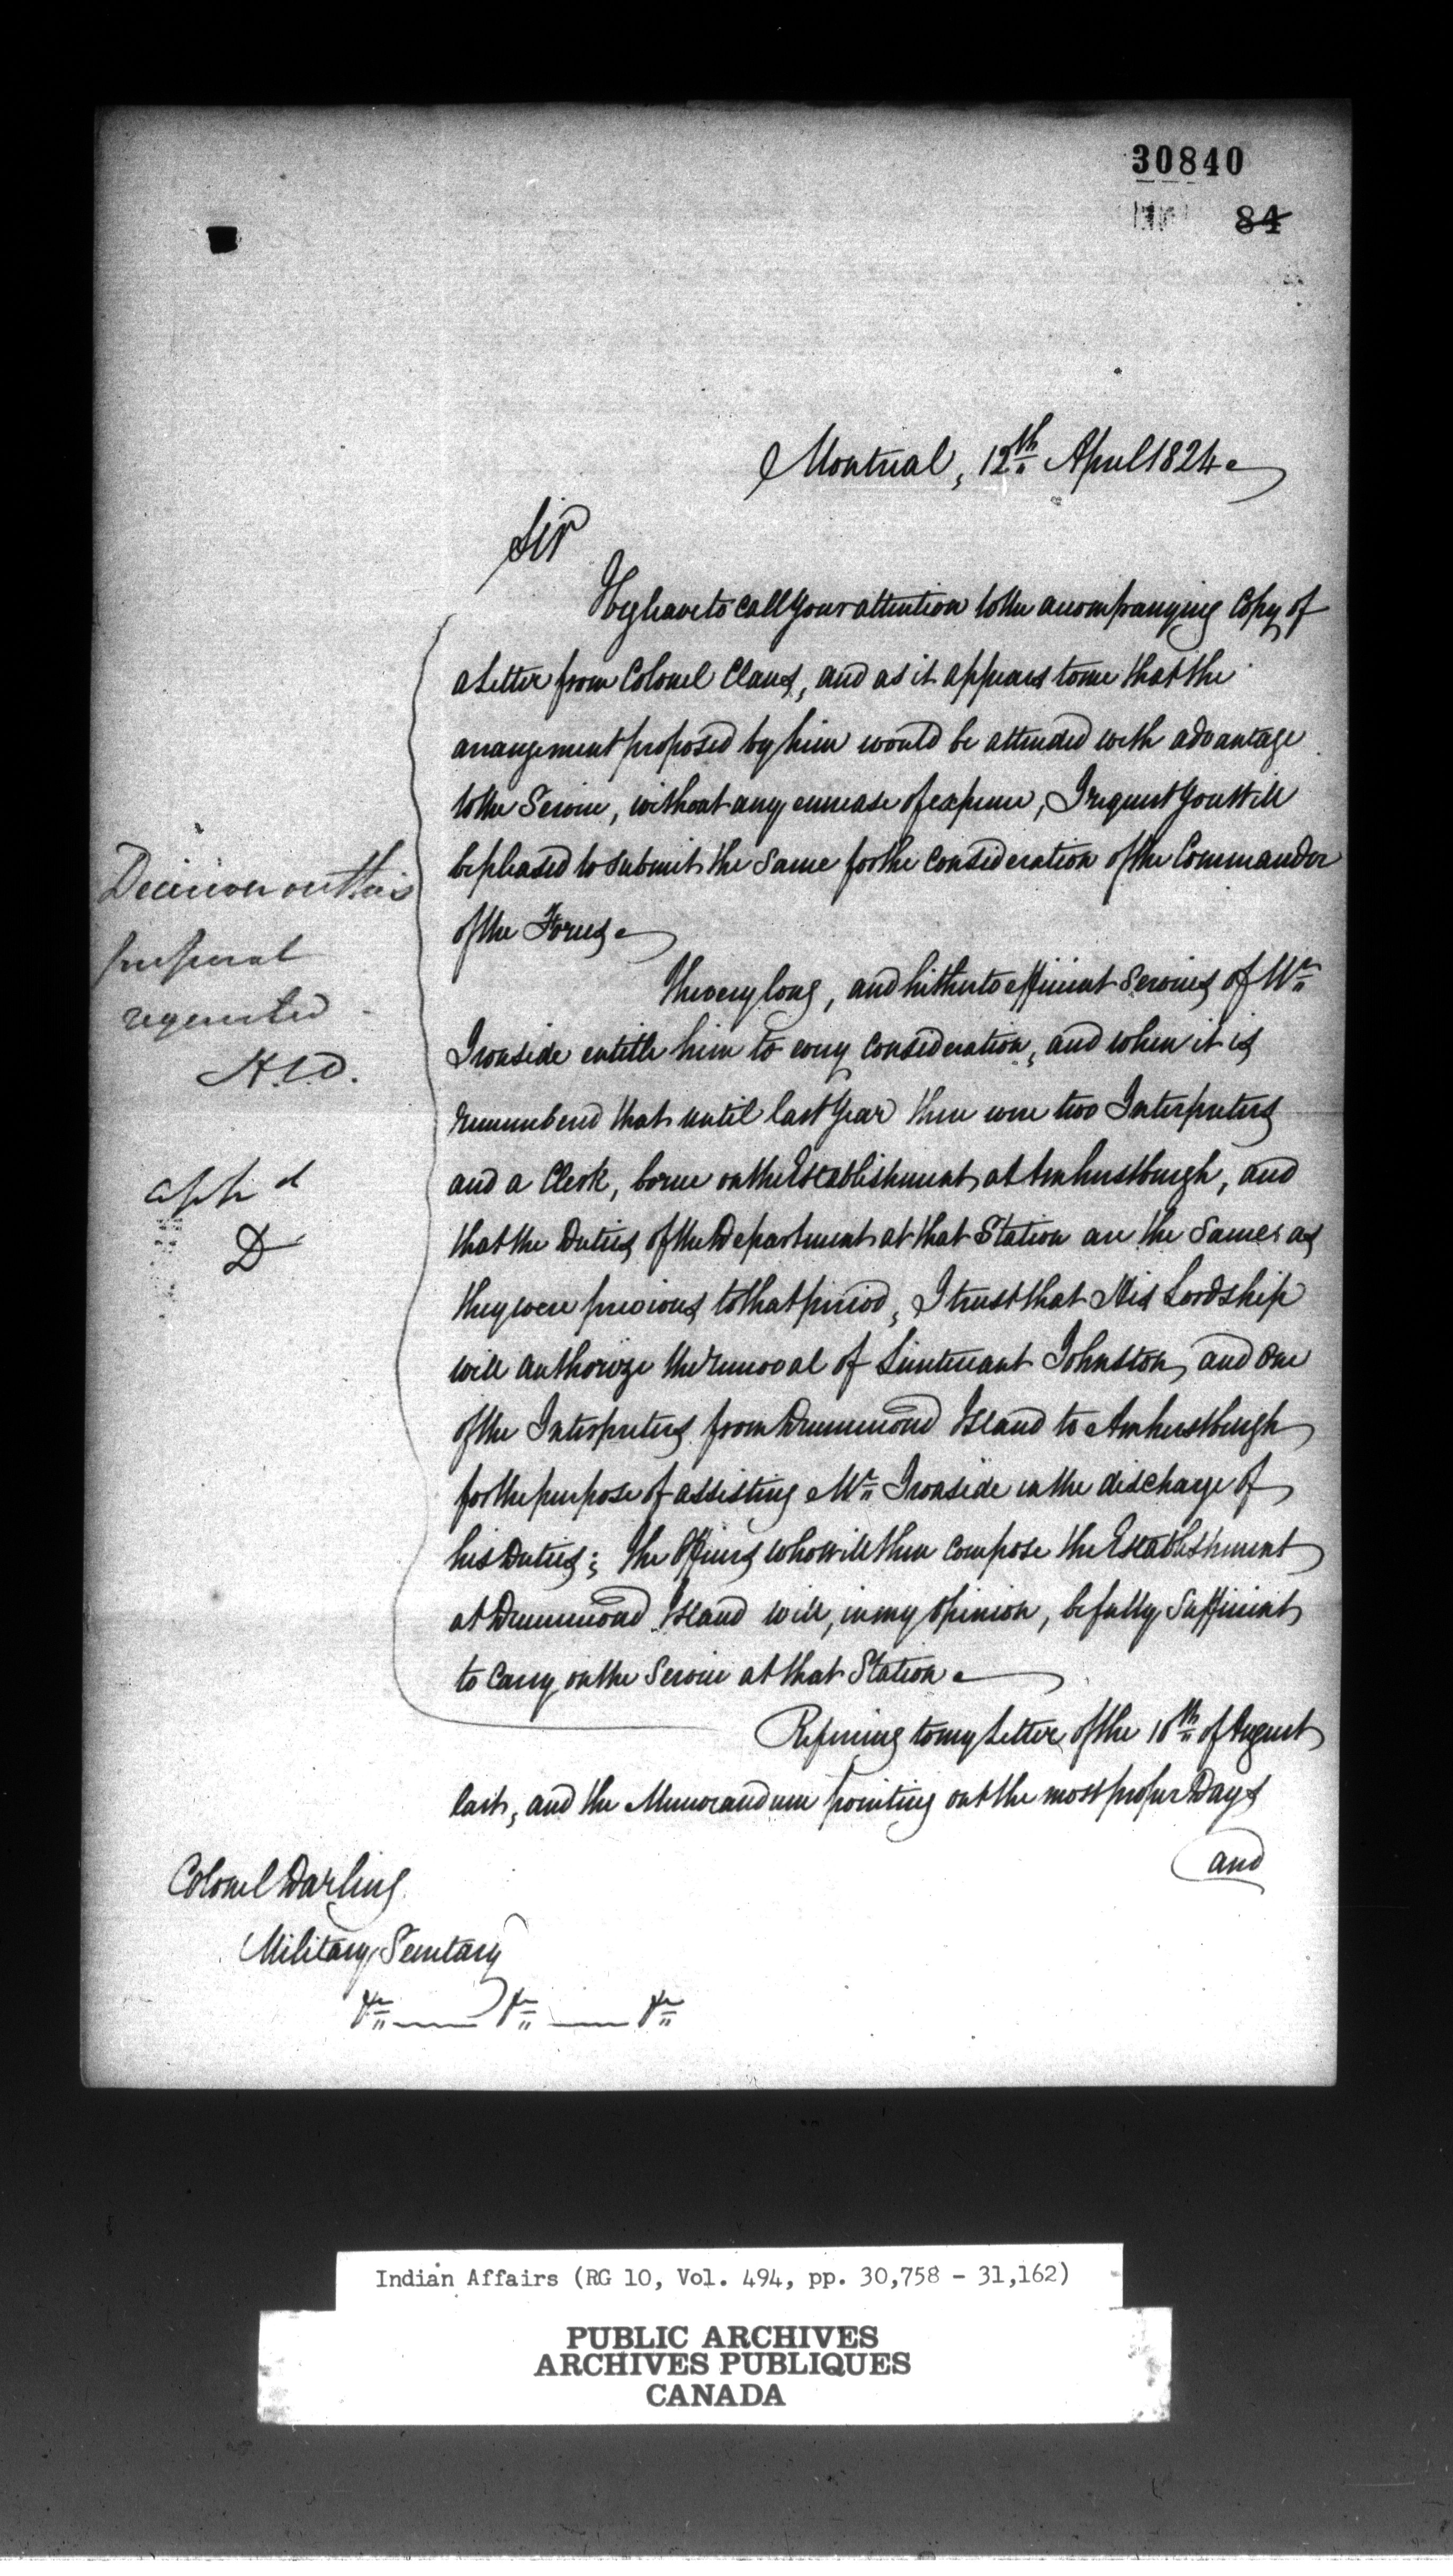 30840
84
Montreal, 12th April 1824
Sir
I beg leave to call your attention to the accompanying Copy of
a Letter from Colonel Claus, and as it appears to me that the
arrangement proposed by him would be attended with advantage
to the Service, without any encrease of expense, I request you will
be pleased to submit the same for the Consideration of the Commander
of the Forces
The very long, and hitherto efficient Services of Mr
Ironside entitle him to every Consideration, and when it is
remembered that until last Year there were two Interpreters
and a Clerk, borne on the Establishment at Amherstburgh, and
that the Duties of the Department at that Station are the same as
they were previous to that period, I trust that His Lordship
will authorize the removal of Lieutenant Johnston, and one
of the Interpreters from Drummond Island to Amherstburgh
for the purpose of assisting Mr Ironside in the discharge of
his Duties; the Officers who will then compose the Establishment
at Drummond Island will, in my opinion, be fully sufficient
to Carry on the Service at that Station
Refering to my Letter of the 10th of August
last, and the Memorandum pointing out the most proper Days
and
Decision on this
proposal
requested
H.C.D.
app'd
D
Colonel Darling
Military Secretary
&c &c &c
Indian Affairs (RG 10, Vol. 494, pp. 30,758 - 31,162)
PUBLIC ARCHIVES
ARCHIVES PUBLIQUES
CANADA